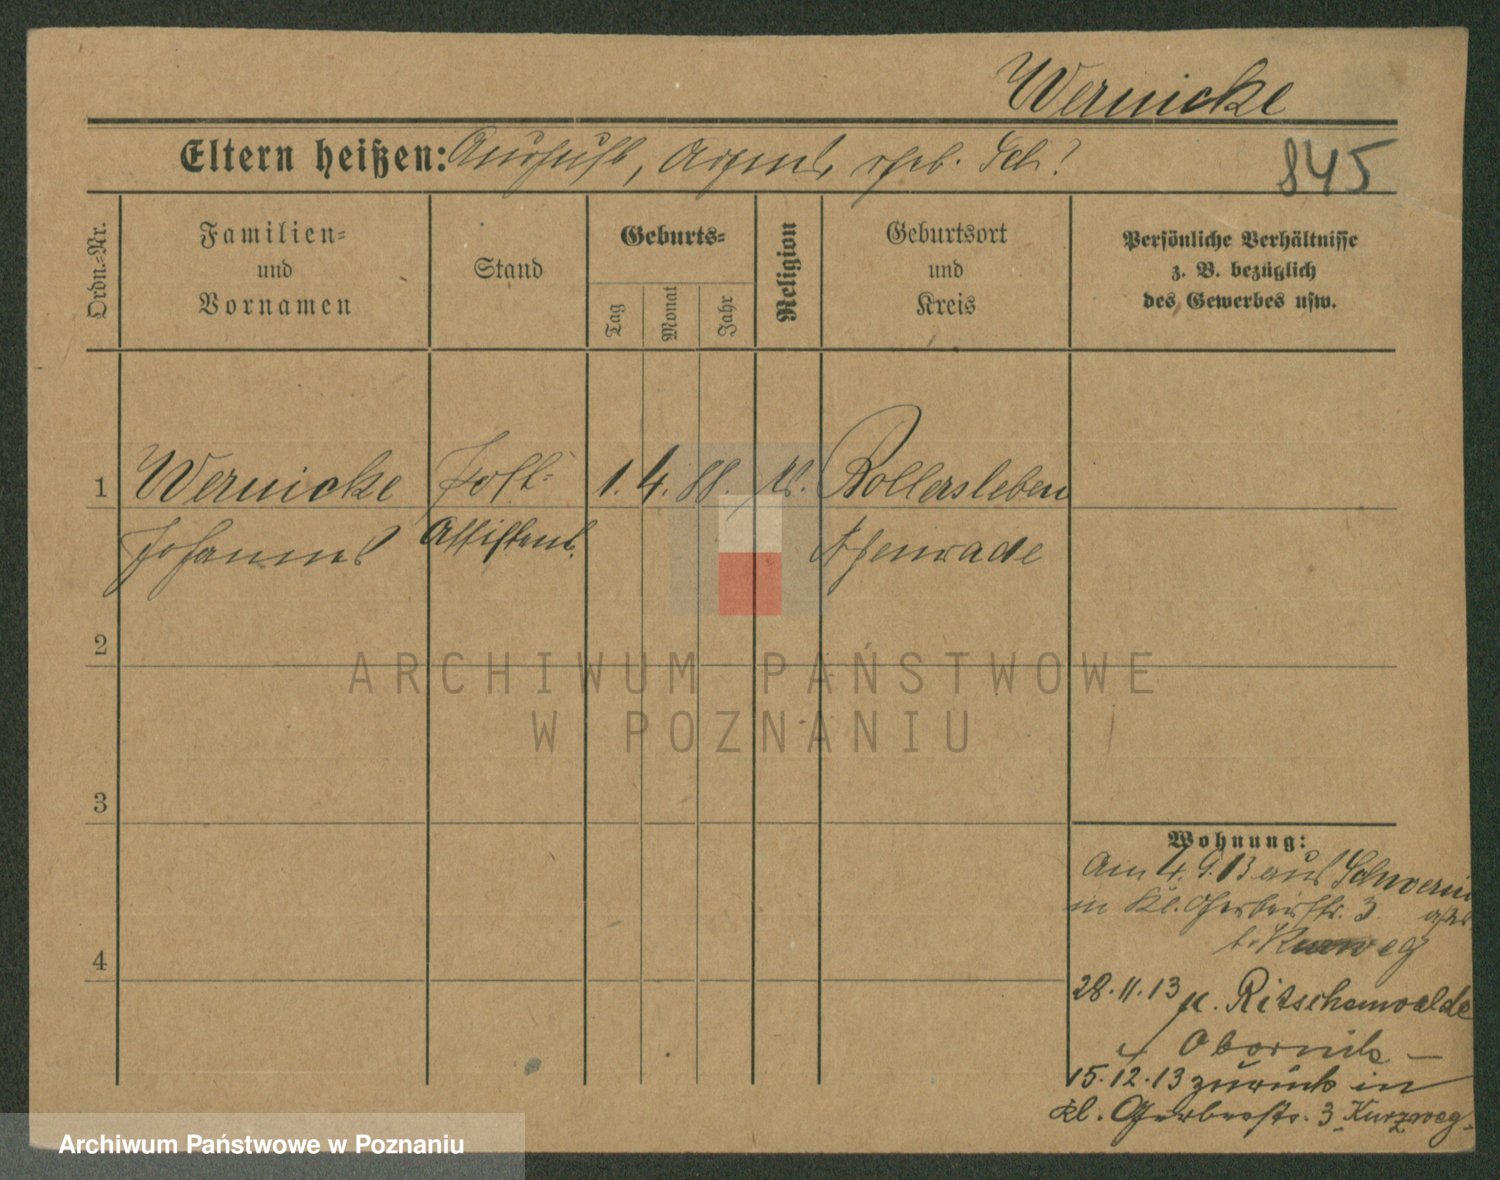 Wernicke
Eltern heißen: August, Agnes, geb. Sch?
845
Ordn.-Nr.
Familien-
und
Vornamen
Stand
Geburts-
Tag
Monat
Jahr
Religion
Geburtsort
und
Kreis
Persönliche Verhältnisse
z. B. bezüglich
des Gewerbes usw.
1
Wernicke Post- 1. 4. 88 Rollersleben
Johannes Assistent. Apenrade
2
ARCHIWUM PAŃSTWOWE
W POZNANIU
3
Wohnung:
Am 4. 9. 13 aus Schwerin
in Kl. Gerberstr. 3
b. Kurzweg
28. 11. 13 n. Ritschenwalde
Obornik –
15. 12. 13 zurück in
Kl. Gerberstr. 3 Kurzweg.
4
Archiwum Państwowe w Poznaniu